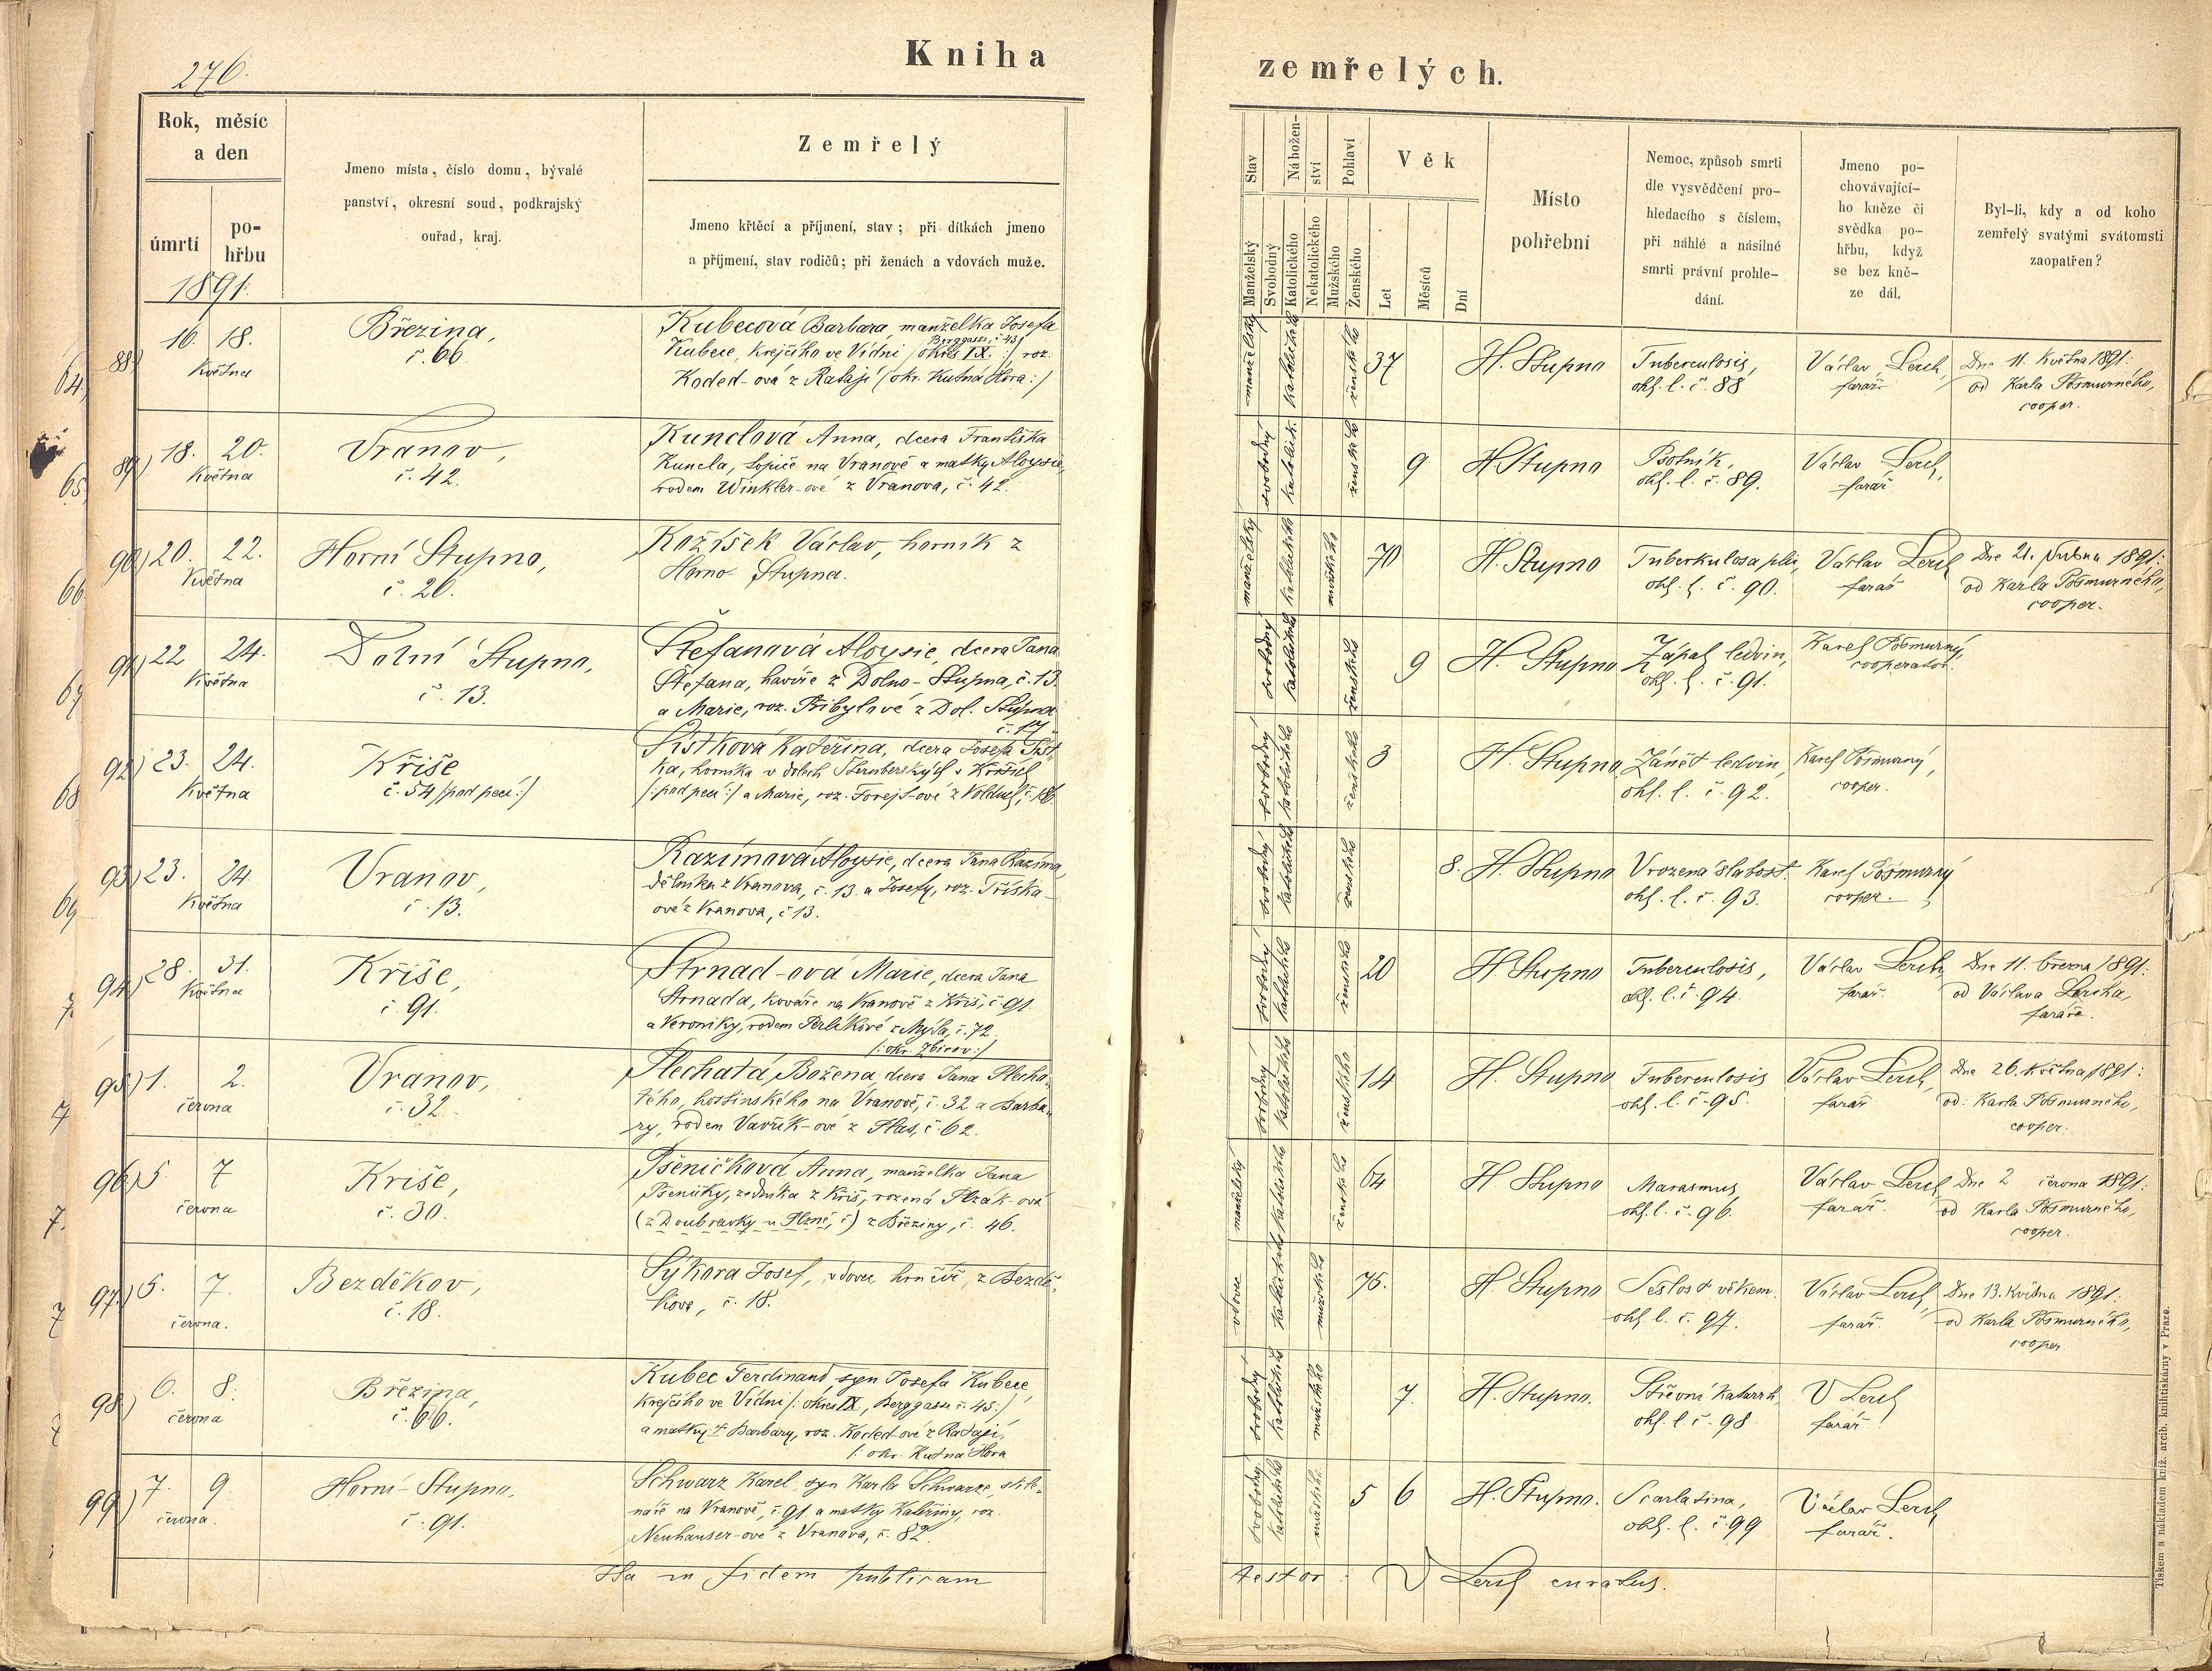 276.
Kniha
zemřelých.
Rok, měsíc
a den
úmrtí
po-
hřbu
1891.
Jmeno místa, číslo domu, bývalé
panství, okresní soud, podkrajský
ouřad, kraj.
Zemřelý
Jmeno křtěcí a příjmení, stav; při dítkách jmeno
a příjmení, stav rodičů; při ženách a vdovách muže.
Stav
Manželský
Svobodný
Nábožen-
ství
Katolického
Nekatolického
Pohlaví
Mužského
Ženského
Věk
Let
Měsíců
Dní
Místo
pohřební
Nemoc, způsob smrti
dle vysvědčení pro-
hledacího s číslem,
při náhlé a násilné
smrti právní prohle-
dání.
Jmeno po-
chovávající-
ho kněze či
svědka po-
hřbu, když
se bez kně-
ze dál.
Byl-li, kdy a od koho
zemřelý svatými svátomsti
zaopatřen?
88) 16. 18.
Května
Březina,
č. 66.
Kubecová Barbara, manželka Josefa
Berggasse, č. 45
Kubece, krejčího ve Vídni (okres IX. :) roz.
Koded-ová z Ratají (okr. Kutná Hora :)
manželský katolického ženského 37 H. Stupno
Tuberculosis,
ohl. l. č. 88
Václav Lerch,
farář
Dne 11. Května 1891.
od Karla Pošmurného,
cooper.
89) 18. 20.
Května
Vranov,
č. 42.
Kunclová Anna, dcera Františka
Kuncla, topiče na Vranově a matky Aloysie,
rodem Winkler-ové z Vranova, č. 42.
svobodný katolick. ženského 9 H. Stupno
Psotník,
ohl. l. č. 89.
Václav Lerch,
farář
90) 20. 22.
Května
Horní Stupno,
č. 26.
Kožíšek Václav, horník z
Horno Stupna.
manželský katolického mužského 70 H. Stupno
Tuberkulosa plic,
ohl. l. č. 90.
Václav Lerch
farář
Dne 21. dubna 1891:
od Karla Pošmurného,
cooper.
91) 22 24.
Května
Dolní Stupno,
č. 13.
Štefanová Aloysie, dcera Jana
Štefana, havíře z Dolno-Stupna, č. 13.
a Marie, roz. Přibylové z Dol. Stupna
č. 17.
svobodný katolického ženského 9 H. Stupno
Zápal ledvin,
ohl. l. č. 91.
Karel Pošmurný,
cooperator.
92) 23. 24.
Května
Kříše
č. 54 /:pod pecí:/
Šístková Kateřina, dcera Josefa Šíst-
ka, horníka v dolech Sternberských v Kříších
/:pod pecí:/ a Marie, roz. Forejt-ové z Volduch,
svobodný katolického ženského 3 H. Stupno
Zánět ledvin,
ohl. l. č. 92.
Karel Pošmurný,
cooper.
93) 23. 24.
Května
Vranov,
č. 13.
Razímová Aloysie, dcera Jana Razíma,
dělníka z Vranova, č. 13. a Josefy, roz. Tříska-
ové z Vranova, č. 13.
svobodný katolického ženského 8. H. Stupno
Vrozená slabost.
ohl. l. č. 93.
Karel Pošmurný
cooper.
94) 28. 31.
Května
Kříše,
č. 91.
Strnad-ová Marie, dcera Jana
Strnada, kováře na Vranově z Kříš, č. 91.
a Veroniky, rodem Perlíkové z Mýta, č. 72.
/: okr. Zbirov :/
svobodný katolického ženského 20 H. Stupno
Tuberculosis,
ohl. l. č. 94.
Václav Lerch
farář.
Dne 11. března 1891:
od Václava Lercha,
faráře.
95) 1. 2.
června
Vranov,
č. 32
Plechatá Božena, dcera Jana Plecha-
tého, hostinského na Vranově, č. 32 a Barba-
ry, rodem Vavřík-ové z Plas, č. 62.
svobodný katolického ženského 14 H. Stupno
Tuberculosis
ohl. l. č. 95.
Václav Lerch,
farář
Dne 26. Května 1891:
od Karla Pošmurného,
cooper.
96) 5. 7
června
Kříše,
č. 30.
Pšeničková Anna, manželka Jana
Pšeničky, zedníka z Kříš, rozená Plzák-ová
(z Doubravky u Plzně, č) z Březiny, č. 46.
manželský katolického ženského 64 H. Stupno
Marasmus,
ohl. l. č. 96.
Václav Lerch
farář.
Dne 2 června 1891:
od Karla Pošmurného,
cooper.
97) 5. 7.
června.
Bezděkov,
č. 18.
Sýkora Josef, vdovec hrnčíř, z Bezdě-
kova, č. 18.
vdovec katolického mužského 76. H. Stupno
Sešlost věkem.
ohl. l. č. 97.
Václav Lerch,
farář.
Dne 13. Května 1891:
od Karla Pošmurného,
cooper
98) 6. 8.
června
Březina,
č. 66.
Kubec Ferdinand, syn Josefa Kubece,
krejčího ve Vídni /: okres IX., Berggasse č. 45 :/
a matky † Barbary, roz. Koded-ové z Ratají,
/: okr. Kutná Hora
svobodný katolického mužského 7. H. Stupno.
Střevní katarrh,
ohl. l. č. 98.
V Lerch
farář
99) 7. 9.
června.
Horní-Stupno,
č. 91.
Schwarz Karel, syn Karla Schwarze, skle-
náře na Vranově, č. 91 a matky Kateřiny, roz.
Neuhauser-ové z Vranova, č. 82.
svobodný katolického mužského 5 6 H. Stupno.
Scarlatina,
ohl. l. č. 99
Václav Lerch
farář.
Ita in fidem publicam
testor V Lerch curatus.
Tiskem a nákladem kníž. arcib. knihtiskárny v Praze.